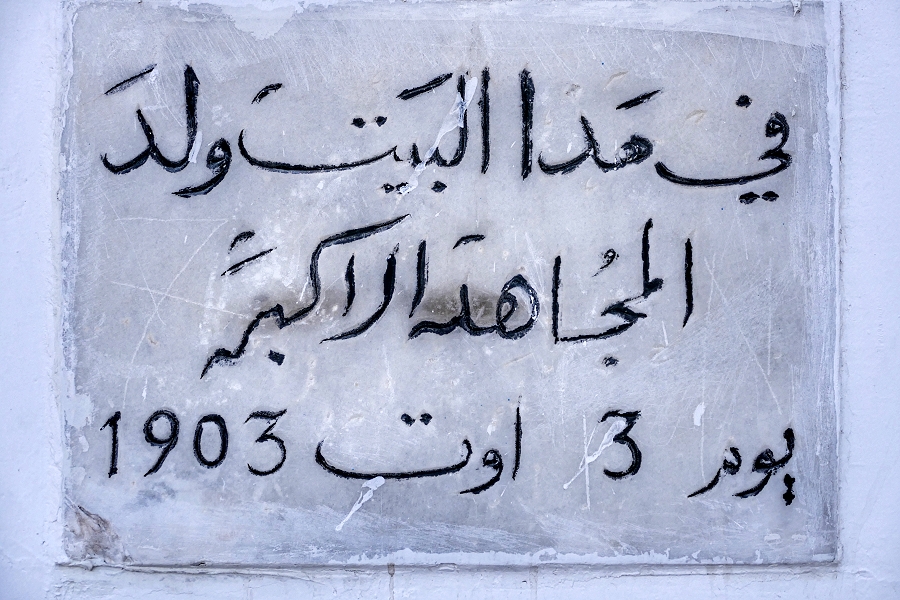 في هَذا البَيتَ ولدَ
المجُاهدَ الاكبرَ
يوم 3 اوت 1903